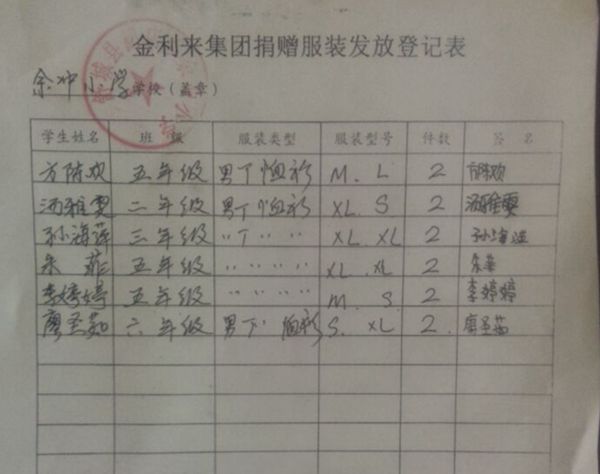 金利来集团捐赠服装发放登记表
余冲小学学校（盖章）
学生姓名 班级 服装类型 服装型号 件数 签名
方陈欢 五年级 男T恤衫 M. L 2 方陈欢
汤雅雯 二年级 男T恤衫 XL. S 2 汤雅雯
孙海萍 三年级 〃T〃〃 XL. XL 2 孙海萍
朱菲 五年级 〃〃〃〃 XL. XL 2 朱菲
李婷婷 五年级 〃〃〃〃 M. S 2 李婷婷
廖圣茹 六年级 男T恤衫 S. XL 2. 廖圣茹